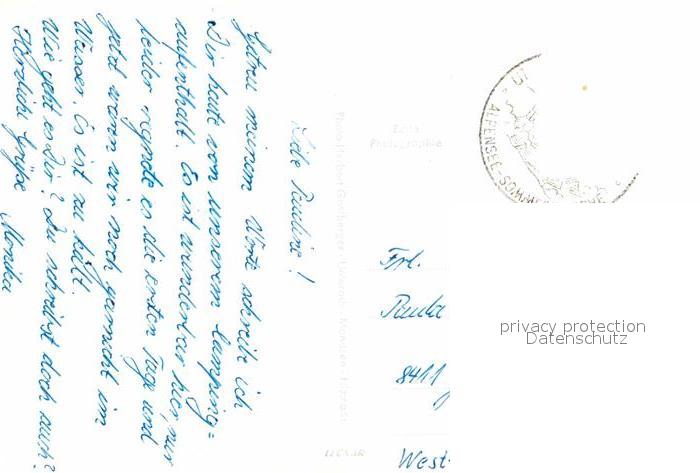 Liebe Pauline!
Getreu meinem Worte schreibe ich
Dir heute von unserem Camping=
aufenthalt. Es ist wunderbar hier, nur
leider regnete es die ersten Tage und
jetzt waren wir noch garnicht im
Wasser. Es ist zu kalt.
Wie geht es Dir? Du schreibst doch auch?
Herzliche Grüße Monika
Echte
Photographie
ALPENSEE-
Frl.
Paula
8411
West-
privacy protection
Datenschutz